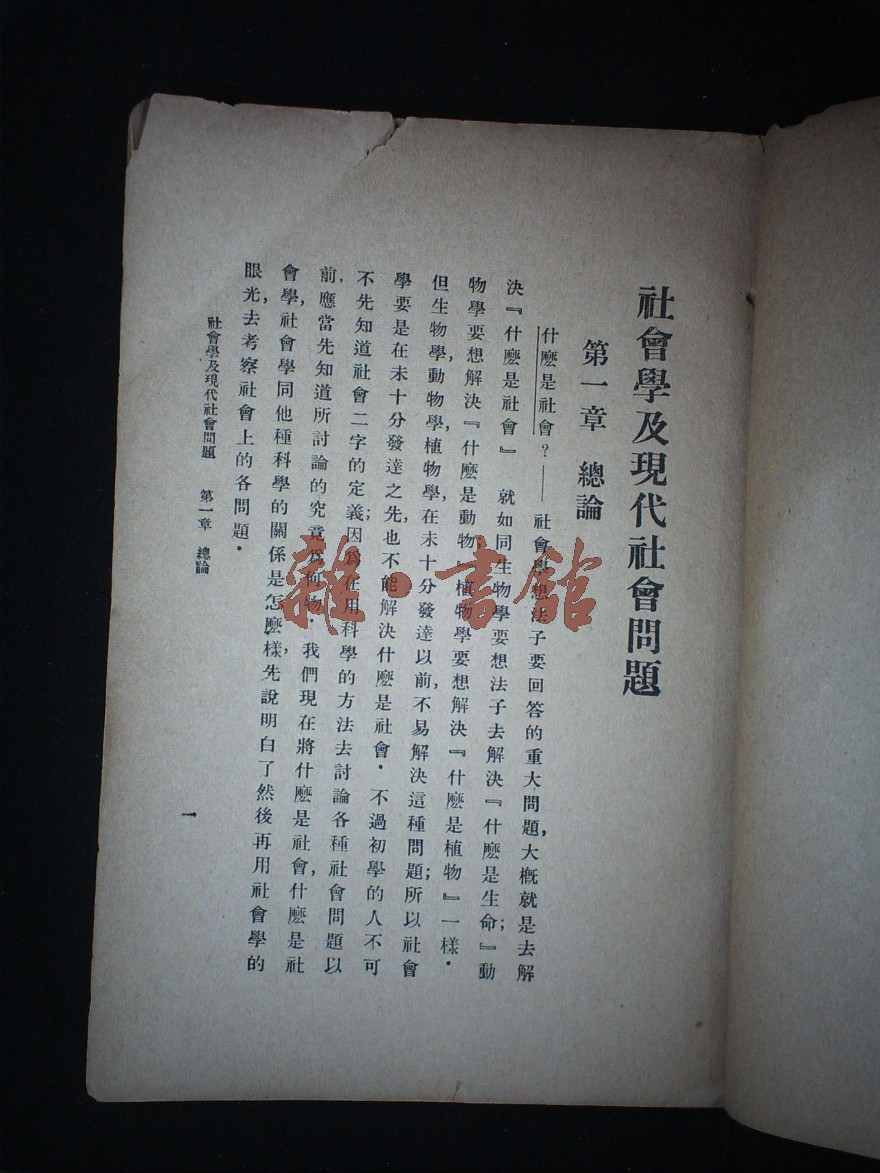 社會學及現代社會問題
第一章　總論
什麽是社會？——社會學想法子要回答的重大問題，大概就是去解
決『什麽是社會』　就如同生物學要想法子去解決『什麽是生命；』動
物學要想解決『什麽是動物；植物學要想解決『什麽是植物』一樣．
但生物學，動物學，植物學，在未十分發達以前，不易解決這種問題；所以社會
學要是在未十分發達之先，也不能解決什麽是社會．不過初學的人不可
不先知道社會二字的定義；因爲在用科學的方法去討論各種社會問題以
前，應當先知道所討論的究竟爲何物．我們現在將什麽是社會，什麽是社
會學，社會學同他種科學的關係是怎麽樣，先說明白了然後再用社會學的
眼光，去考察社會上的各問題．
社會學及現代社會問題　第一章　總論
一
雜·書館